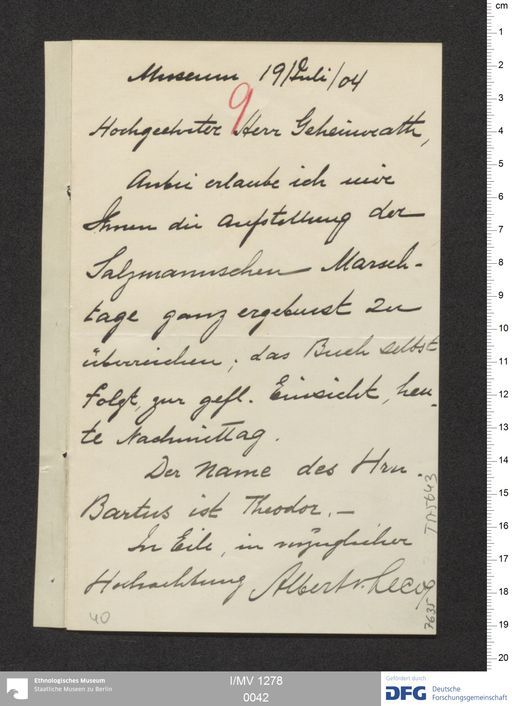 Museum 19/Juli/04
9
Hochgeehrter Herr Geheimrath,
Anbei erlaube ich mir
Ihnen die Aufstellung der
Salzmannschen Marsch-
tage ganz ergebenst zu
überreichen; das Buch selbst
folgt, zur gefl. Einsicht, heu-
te Nachmittag.
Der Name des Hrn.
Bartus ist Theodor. —
In Eile, in vorzüglicher
Hochachtung Albert v. Lecoq
40
7635
cm
1
2
3
4
5
6
7
8
9
10
11
12
13
14
15
16
17
18
19
20
Ethnologisches Museum
Staatliche Museen zu Berlin
I/MV 1278
0042
Gefördert durch
DFG Deutsche
Forschungsgemeinschaft